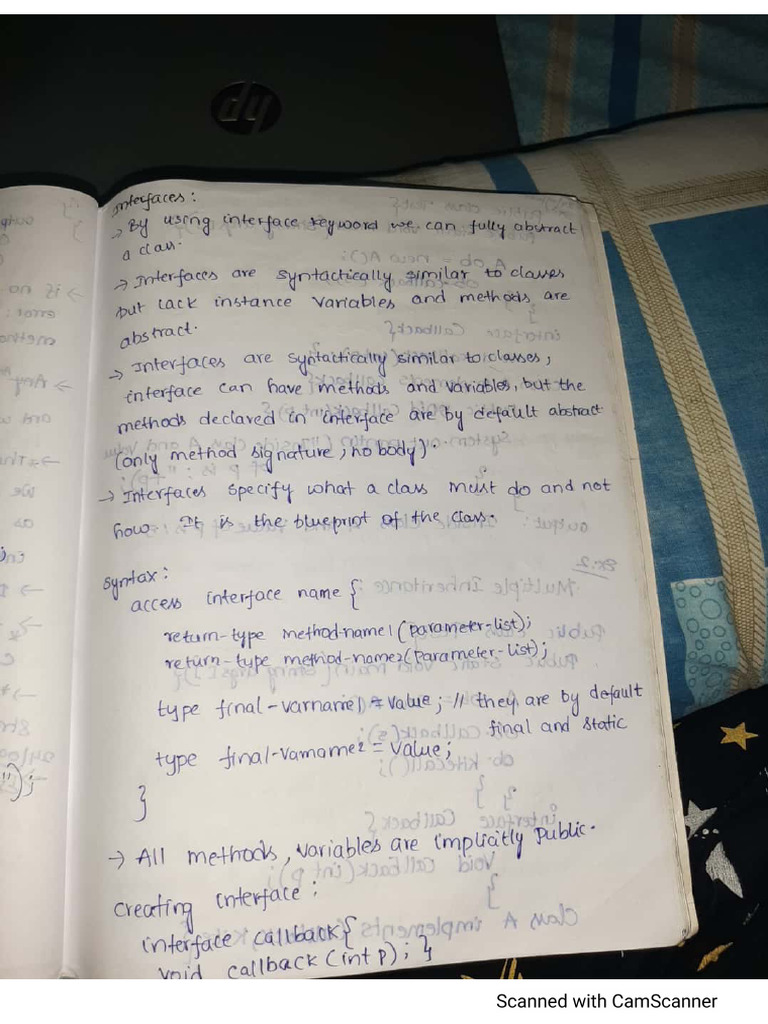 hp
Interfaces:
→ By using interface keyword we can fully abstract
a class.
→ Interfaces are syntactically similar to classes
but lack instance variables and methods are
abstract.
→ Interfaces are syntactically similar to classes,
interface can have methods and variables, but the
methods declared in interface are by default abstract
(only method signature, no body).
→ Interfaces specify what a class must do and not
how. It is the blueprint of the class.
syntax:
access interface name {
return-type method-name1 (parameter-list);
return-type method-name2 (parameter-list);
type final-varname1 = value; // they are by default
final and static
type final-varname2 = value;
}
→ All methods, variables are implicitly public.
creating interface:
interface callback {
void callback (int p); }
Scanned with CamScanner